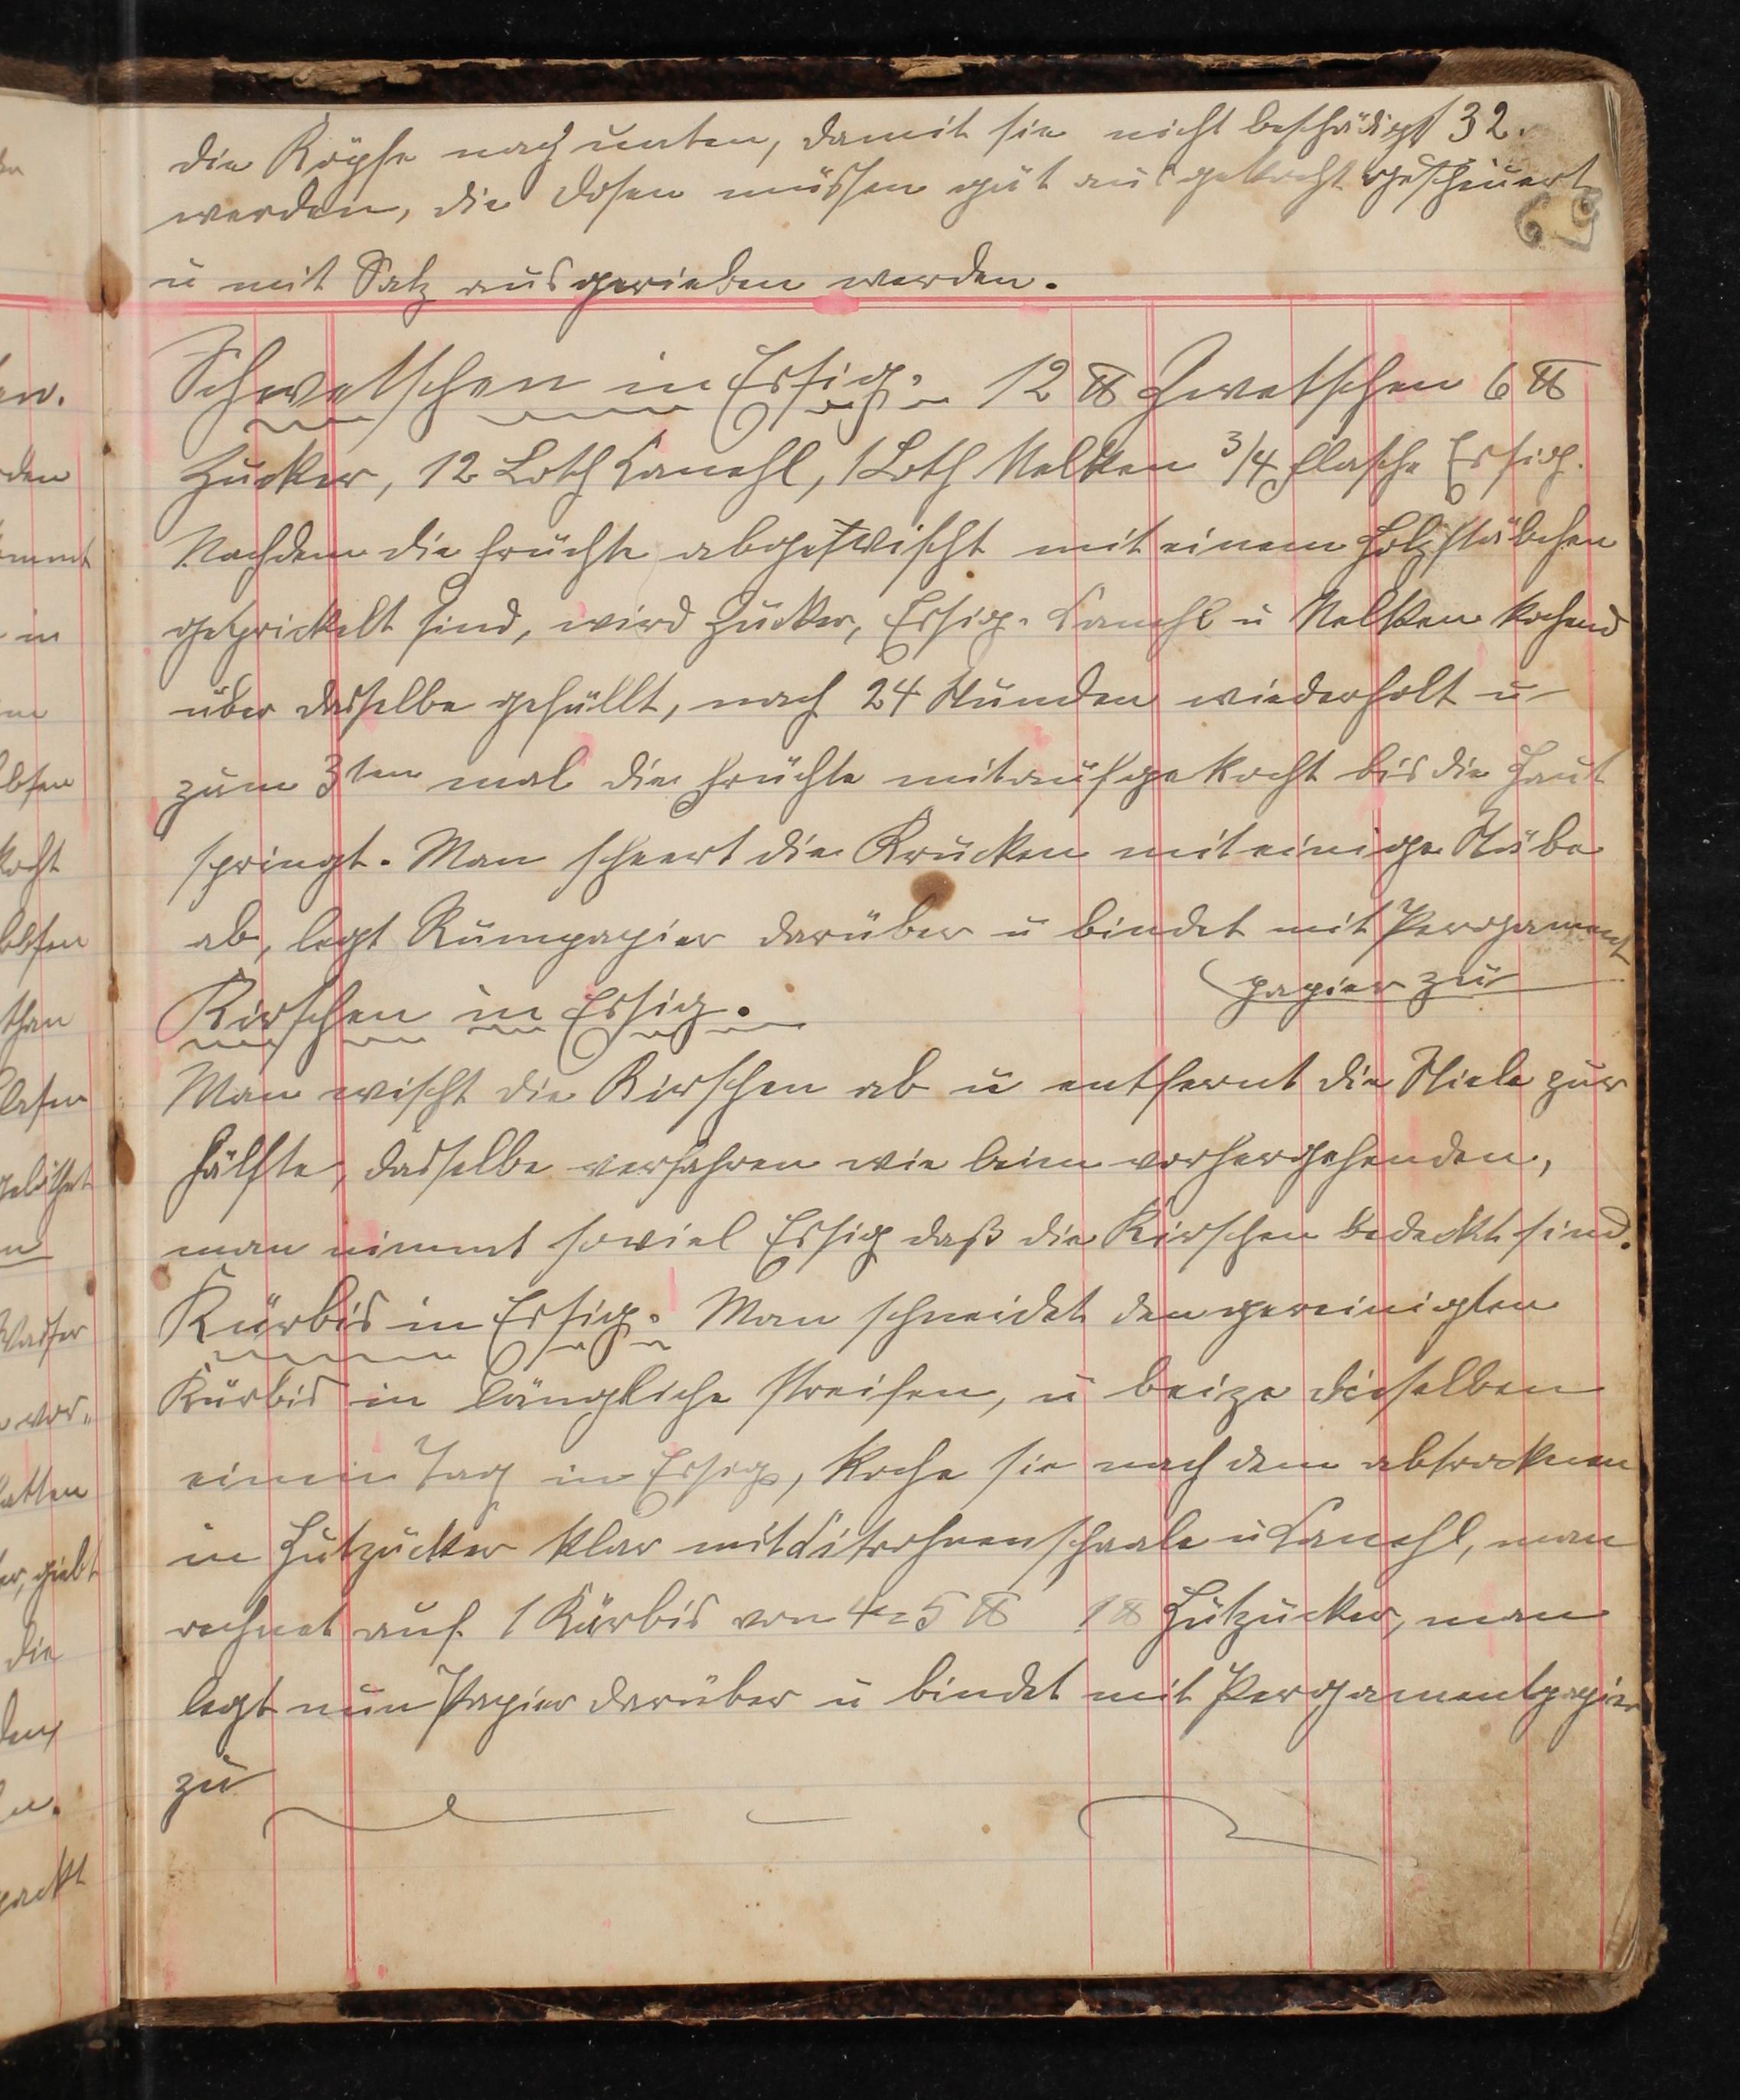 die Köpfe nach unten, damit sie nicht beschädigt 32.
werden, die Dosen müssen gut ausgekocht gescheuert
u mit Salz ausgerieben werden.
Schwetschen in Essig. 12 ℔ Zwetschen 6 ℔
Zucker, 12 Loth Canehl, 1 Loth Nelken 3/4 Flasche Essig.
Nachdem die Früchte abgewischt mit einem Holzstäbchen
geprickelt sind, wird Zucker, Essig. Canehl u Nelken kochend
über dasselbe gefüllt, nach 24 Stunden wiederholt u
zum 3ten mal die Früchte mitaufgekocht bis die Haut
springt. Man scheert die Krucken mit einige Stäbe
ab, legt Rumpapier darüber u bindet mit Pergament
papier zu
Kirschen in Essig.
Man wischt die Kirschen ab u entfernt die Stiele zur
Hälfte, dasselbe verfahren wie beim vorhergehenden,
man nimmt soviel Essig daß die Kirschen bedeckt sind.
Kürbis in Essig. Man schneidet den gereinigten
Kürbis in längliche Streifen, u beize dieselben
einen Tag in Essig, koche sie nach dem abtrocknen
in Hutzucker klar mit Citrohnenschaale u Canehl, man
rechnet auf 1 Kürbis von 4=5 ℔ 1 ℔ Hutzucker, man
legt nun Papier darüber u bindet mit Pergamentpapier
zu